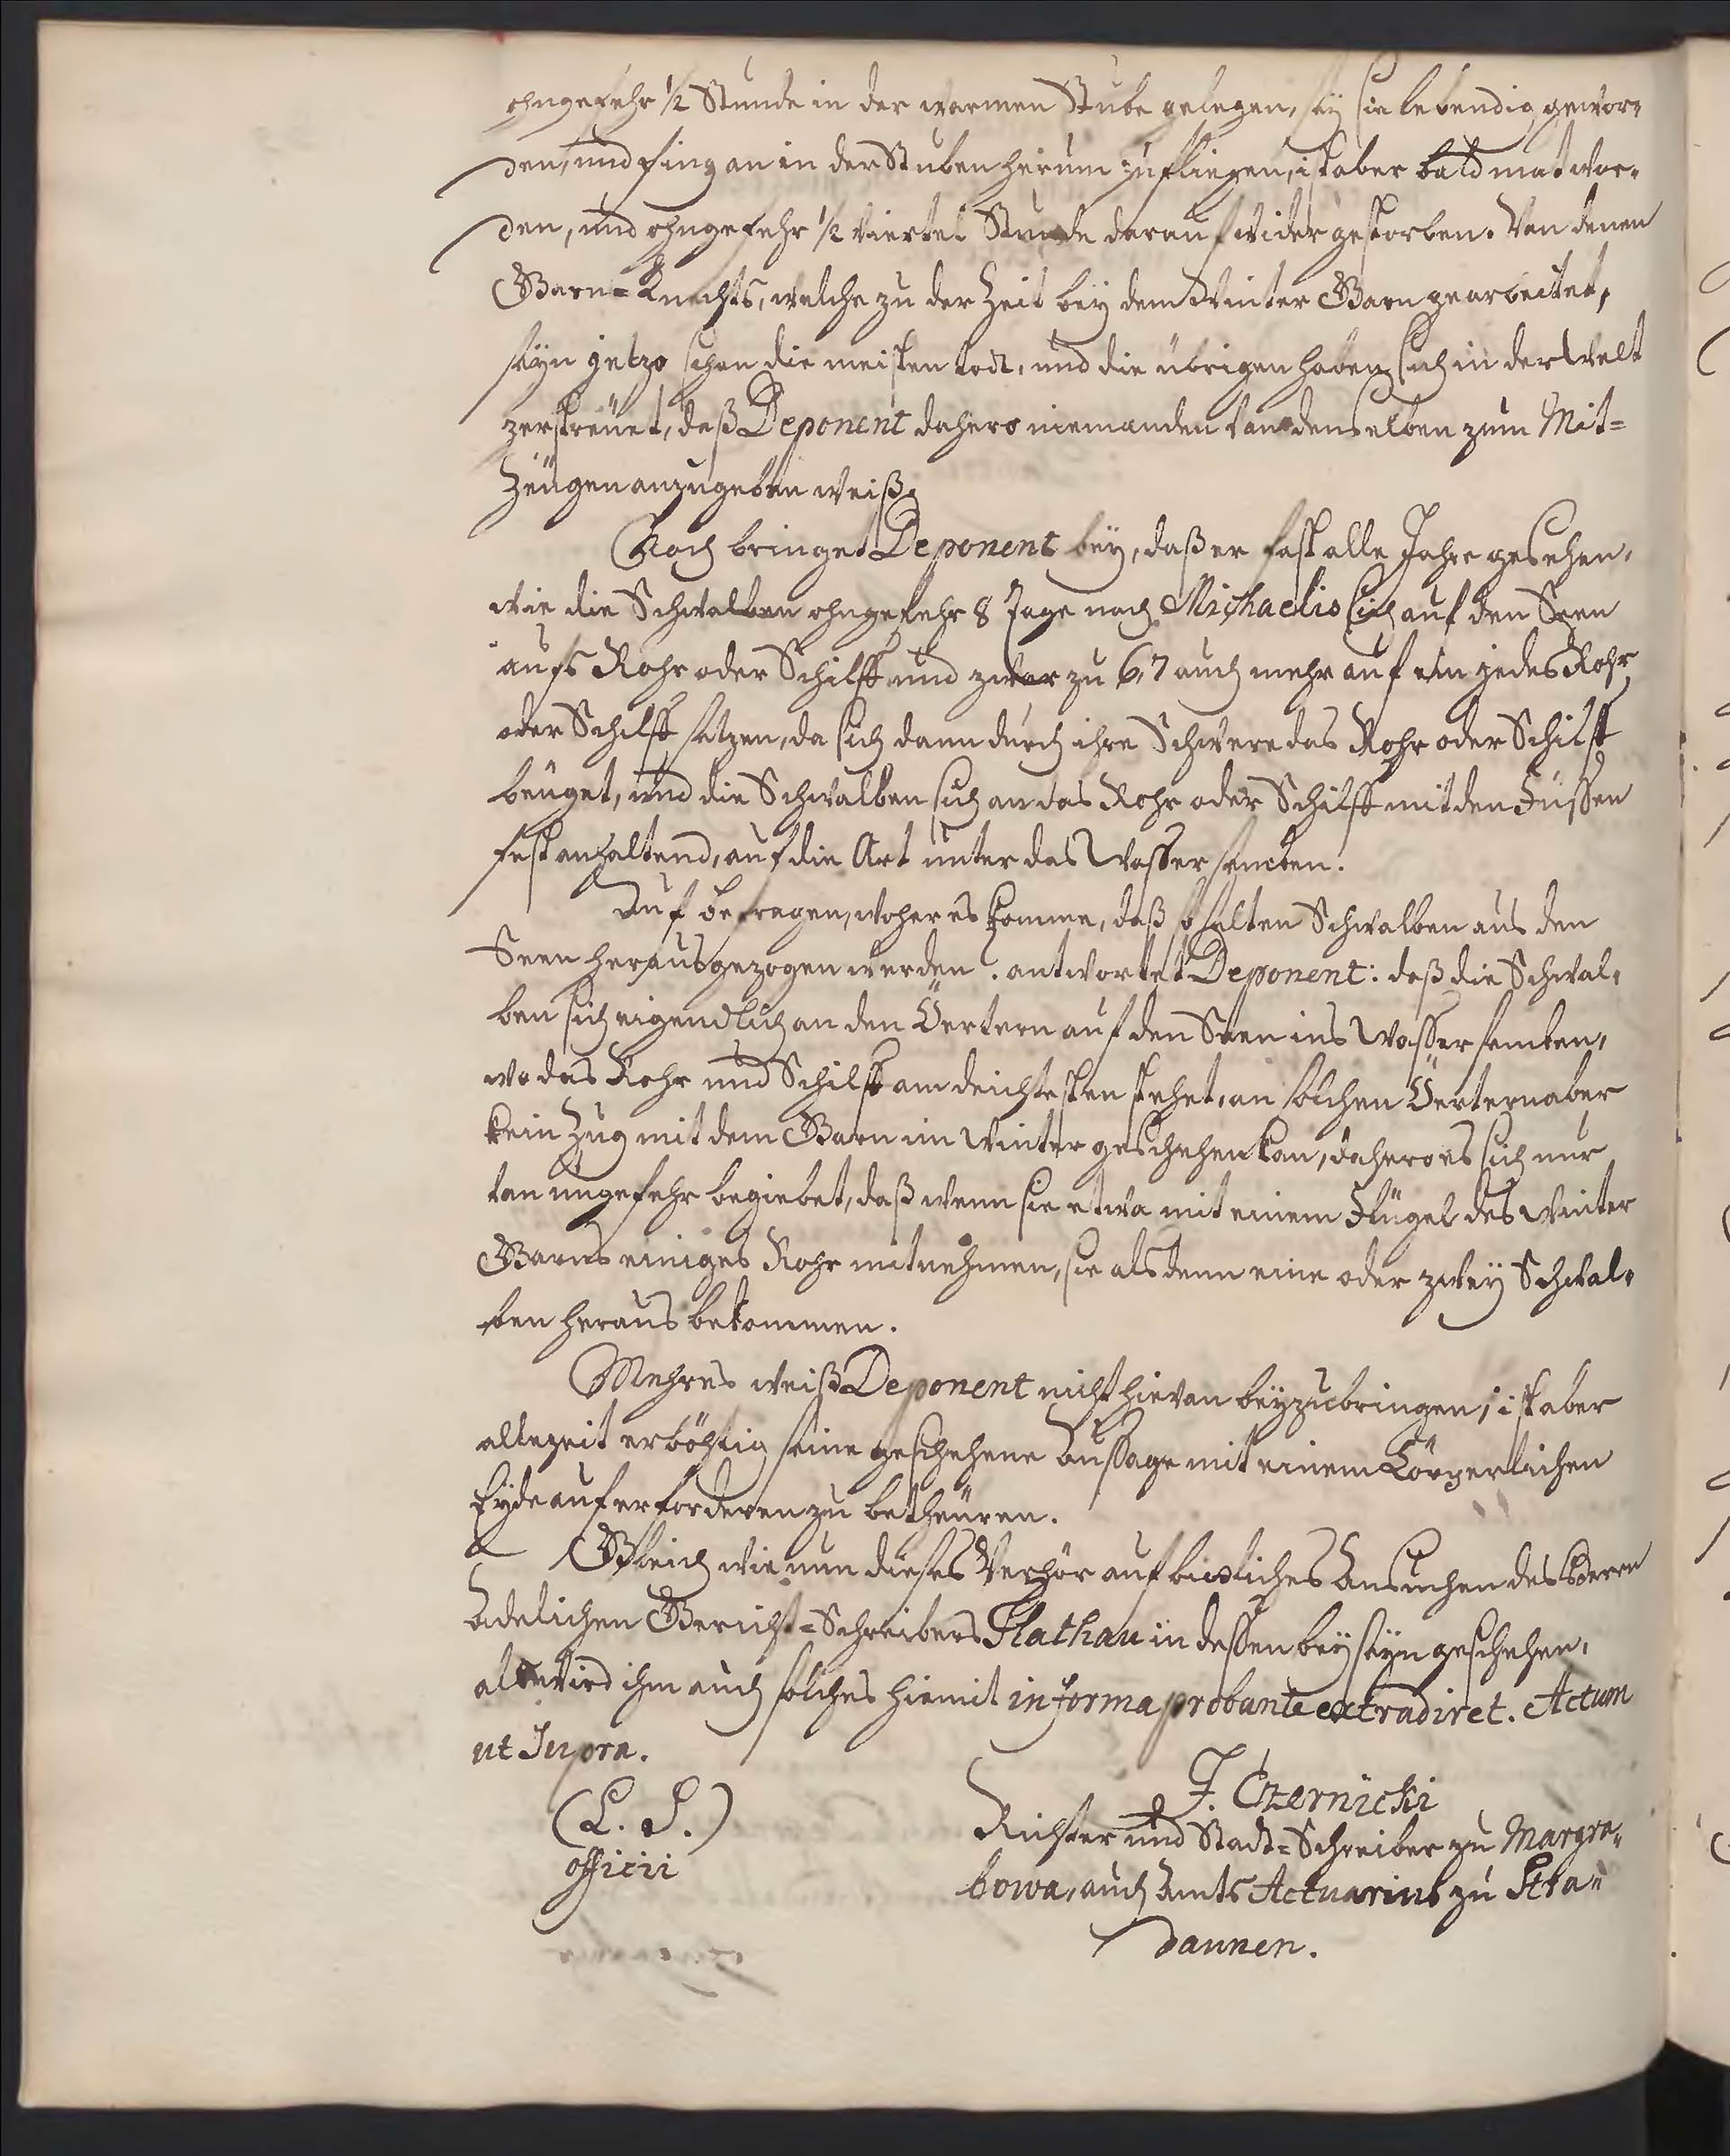 ohngefehr 1/2 Stunde in der warmen Stube gelegen, sey sie lebendig gewor-
den, und fing an in der Stuben herum zu fliegen, ist aber bald mat wor-
den, und ohngefehr 1/2 viertel Stunde darauf wider gestorben. Von denen
Garn-Knechts, welche zu der Zeit bey dem Winter Garn gearbeitet,
seyn jetzo schon die meisten todt, und die übrigen haben sich in der Welt
zerstreüet, daß Deponent dahero niemanden von denselben zum Mit-
Zeügen anzugeben weiß.
Noch bringet Deponent bey, daß er fast alle Jahre gesehen,
wie die Schwalben ohngefehr 8 Tage nach Michaelis sich auf den Seen
aufs Rohr oder Schilff und zwar zu 6, 7 auch mehr auf ein jedes Rohr
oder Schilff setzen, da sich dann durch ihre Schwere das Rohr oder Schilff
beüget, und die Schwalben sich an das Rohr oder Schilff mit den Füssen
fest anhaltend, auf die Art unter das Wasser sencken.
Auf befragen, woher es komme, daß so selten Schwalben aus den
Seen herausgezogen werden? antwortet Deponent: daß die Schwal-
ben sich eigendlich an den Örtern auf den Seen ins Wasser sencken,
wo das Rohr und Schilff am deichtesten stehet, an solchen Örtern aber
kein Zug mit dem Garn im Winter geschehen kan, dahero es sich nur
von ungefehr begiebet, daß wenn sie etwa mit einem Flügel des Winter
Garns einiges Rohr mitnehmen, sie alsdenn eine oder zwey Schwal-
ben heraus bekommen.
Mehres weiß Deponent nicht hievon beyzubringen; ist aber
allezeit erböhtig seine geschehene Aussage mit einem Cörperlichen
Eyde auf erforderen zu betheüren.
Gleich wie nun dieses Verhör auf bittliches Ansuchen des Herrn
Adelichen Gericht-Schreibers Rathau in dessen beyseyn geschehen,
also wird ihm auch solches hiemit in forma probante extradiret. Actum
ut Supra.
(L. S.)
officii
J. Czernicki
Richter und Stadt-Schreiber zu Margra-
bowa, auch Amts Actuarius zu Stra-
daunen.